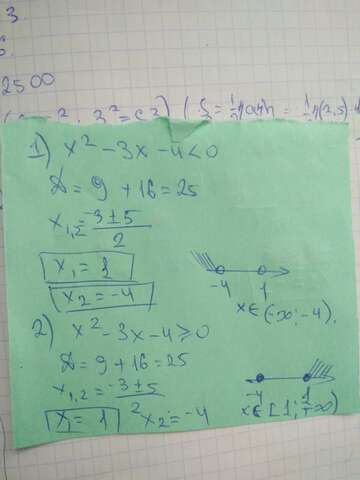 3
2500
1) x² - 3x - 4 < 0
D = 9 + 16 = 25
x₁,₂ = -3 ± 5 / 2
x₁ = 1
x₂ = -4
-4 1
x ∈ (-∞; -4).
2) x² - 3x - 4 ≥ 0
D = 9 + 16 = 25
x₁,₂ = -3 ± 5 / 2
x₁ = 1 x₂ = -4
-4 1
x ∈ [1; +∞)